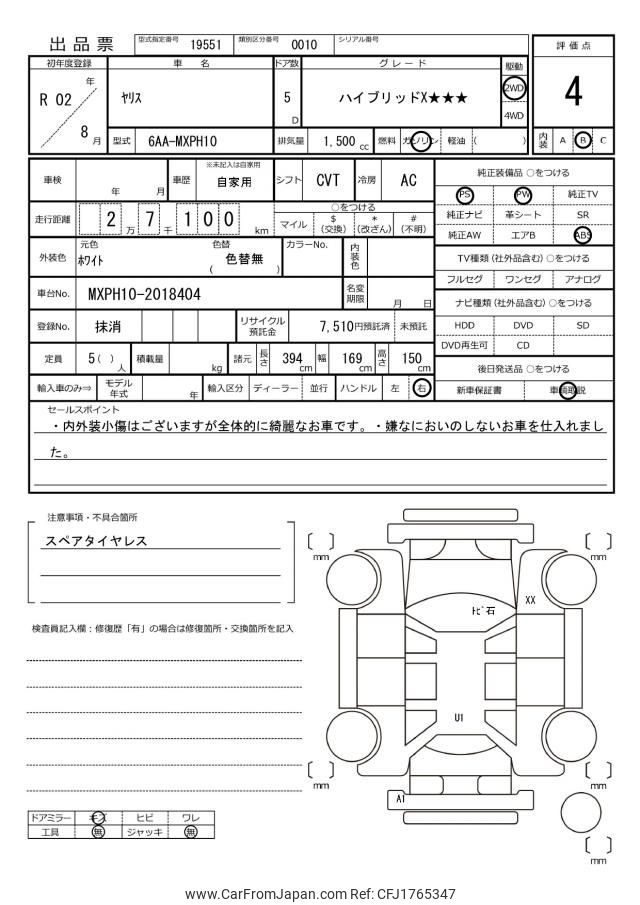 出品票 型式指定番号 19551 類別区分番号 0010 シリアル番号
評価点
初年度登録 車名 ドア数 グレード 駆動
R 02 年 ヤリス 5 D ハイブリッドX★★★ 2WD 4
8 月 4WD
型式 6AA-MXPH10 排気量 1,500 cc 燃料 ガソリン 軽油 ( ) 内装 A B C
車検 年 月 車歴 ※未記入は自家用 自家用 シフト CVT 冷房 AC
純正装備品 ○をつける
PS PW 純正TV
走行距離 2 万 7 千 1 0 0 km ○をつける
マイル $ (交換) * (改ざん) # (不明)
純正ナビ 革シート SR
純正AW エアB ABS
外装色 元色 ホワイト 色替 ( 色替無 ) カラーNo. 内装色
TV種類 (社外品含む) ○をつける
フルセグ ワンセグ アナログ
車台No. MXPH10-2018404 名変期限 月 日
ナビ種類 (社外品含む) ○をつける
登録No. 抹消 リサイクル預託金 7,510円預託済 未預託
HDD DVD SD
DVD再生可 CD
定員 5 ( ) 人 積載量 kg 諸元 長さ 394 cm 幅 169 cm 高さ 150 cm
後日発送品 ○をつける
輸入車のみ⇒ モデル年式 年 輸入区分 ディーラー 並行 ハンドル 左 右
新車保証書 車輌取説
セールスポイント
・内外装小傷はございますが全体的に綺麗なお車です。・嫌なにおいのしないお車を仕入れまし
た。
注意事項・不具合箇所
スペアタイヤレス
mm
mm
XX
ﾄﾋﾞ石
検査員記入欄：修復歴「有」の場合は修復箇所・交換箇所を記入
U1
mm
mm
A1
ドアミラー キズ ヒビ ワレ
工具 無 ジャッキ 無
mm
www.CarFromJapan.com Ref: CFJ1765347